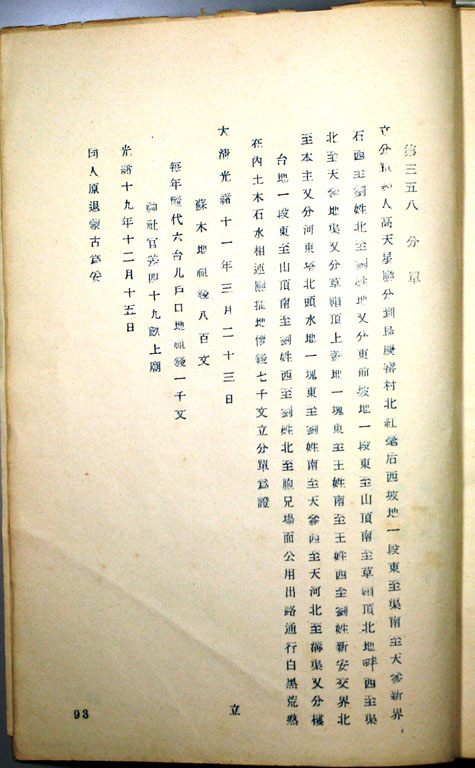 第三五八　分單
立分單人高天星應分到烏慶審村北紅毫后西坡地一段東至渠南至大參新界
石西至劉姓北至劉姓地又分東前坡地一段東至山頂南至草廟頂北地畔西至渠
北至天參地渠又分草廟頂上荒地一塊東至王姓南至王姓西至劉姓新安交界北
至本主又分河東塔北頭水地一塊東至劉姓南至天參西至天河北至溝渠又分樓
台地一段東至山頂南至劉姓西至劉姓北至胞兄場面公用出路通行白黑荒熟
在內土木石水相連隨推地價錢七千文立分單為證
大清光緒十一年三月二十三日　立
蘇木地租錢八百文
每年隨代六台几戶口地租錢一千文
神社官差四十九畝上廟
光緒十九年十二月十五日
同人原退蒙古為妥
93